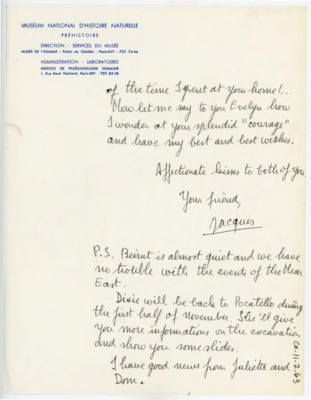 MUSÉUM NATIONAL D'HISTOIRE NATURELLE
PRÉHISTOIRE
DIRECTION - SERVICES DU MUSÉE
MUSÉE DE L'HOMME - Palais de Chaillot - Paris-XVIe - POI. 74-46
ADMINISTRATION - LABORATOIRES
INSTITUT DE PALÉONTOLOGIE HUMAINE
1, Rue René Panhard, Paris-XIIIe - POI. 82-38
of the time I spent at your home!...
Now let me say to you Evelyn how
I wonder at your splendid "courage"
and have my best and best wishes.
Affectionate kisses to both of you
Your friend,
Jacques
P.S. Beirut is almost quiet and we have
no trouble with the events of the Near
East.
Dixie will be back to Pocatello during
the first half of november. She'll give
you more informations on the excavation
and show you some slides.
I have good news from Juliette and
Dom.
Co-11-2-63